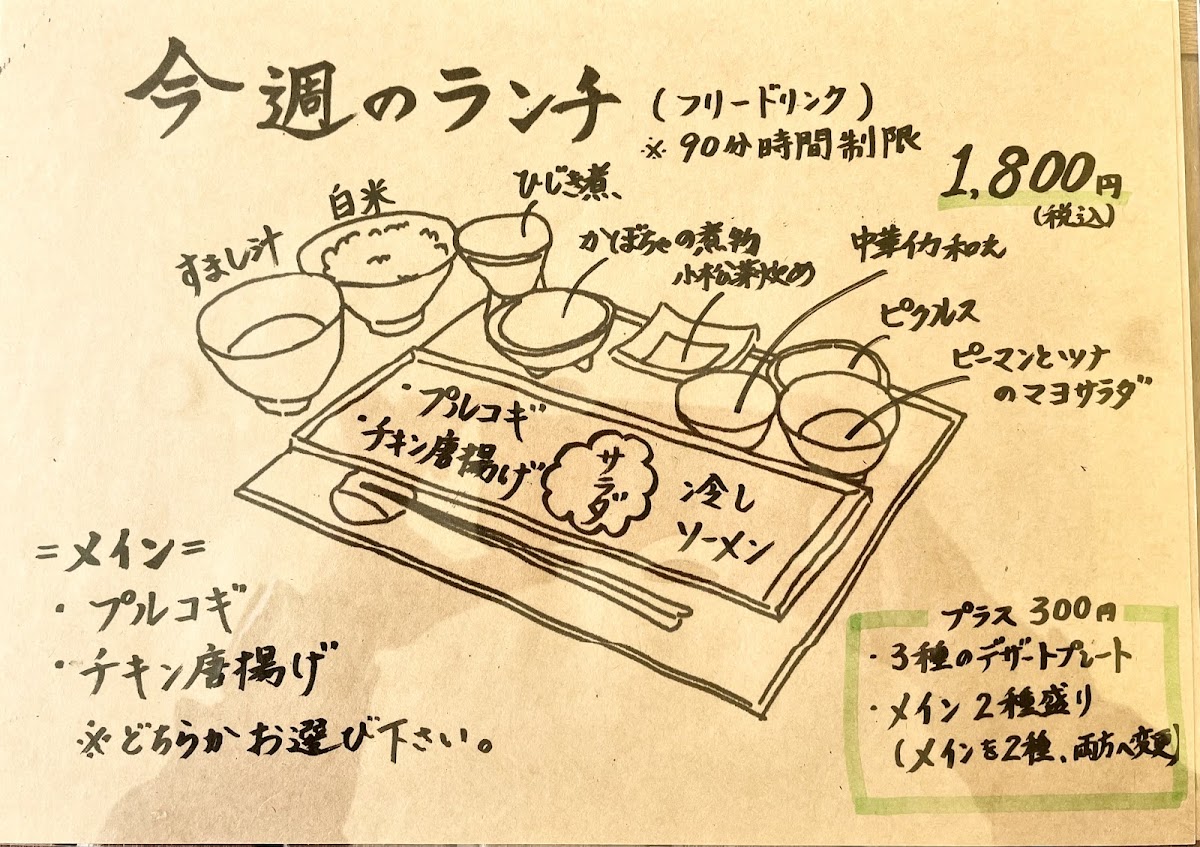 今週のランチ (フリードリンク)
※90分時間制限
1,800円
(税込)
すまし汁
白米
ひじき煮、
かぼちゃの煮物
小松菜炒め
中華イカ和え
ピクルス
ピーマンとツナ
のマヨサラダ
・プルコギ
・チキン唐揚げ
サラダ
冷し
ソーメン
=メイン=
・プルコギ
・チキン唐揚げ
※どちらかお選び下さい。
プラス300円
・3種のデザートプレート
・メイン2種盛り
(メインを2種、両方へ変更)